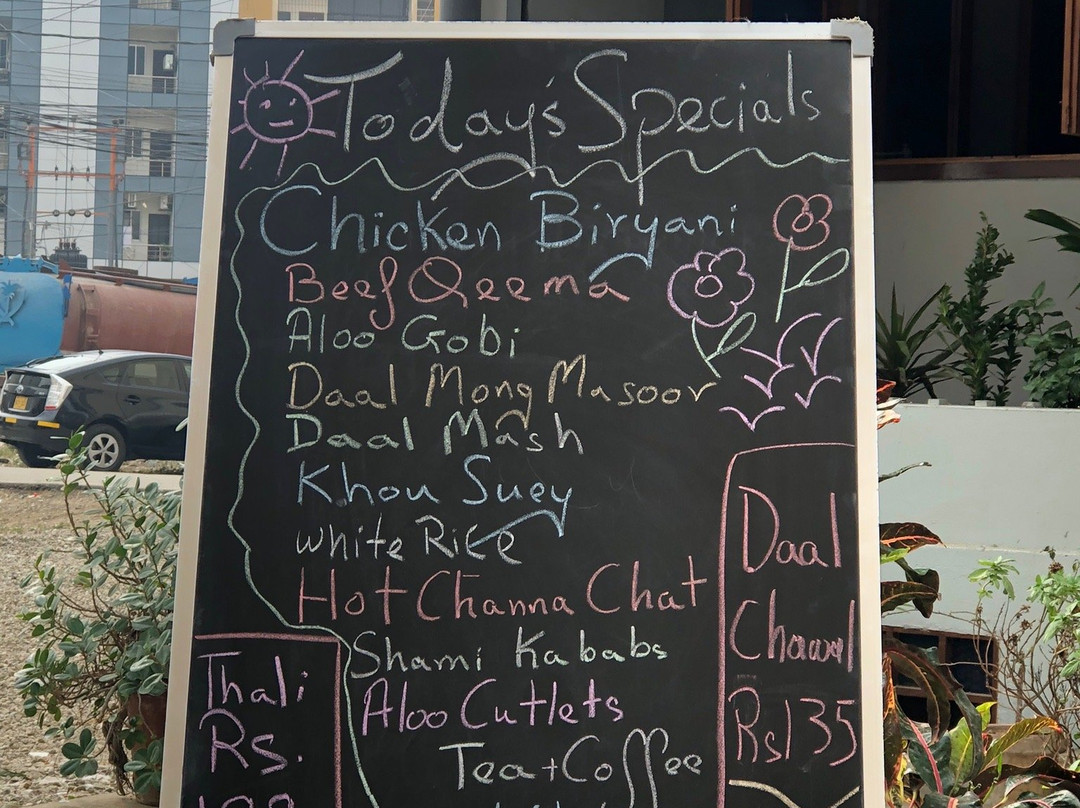 Today's Specials
Chicken Biryani
Beef Qeema
Aloo Gobi
Daal Mong Masoor
Daal Mash
Khou Suey
White Rice
Hot Channa Chat
Shami Kababs
Aloo Cutlets
Tea + Coffee
Thali
Rs.
Daal
Chawal
Rs135